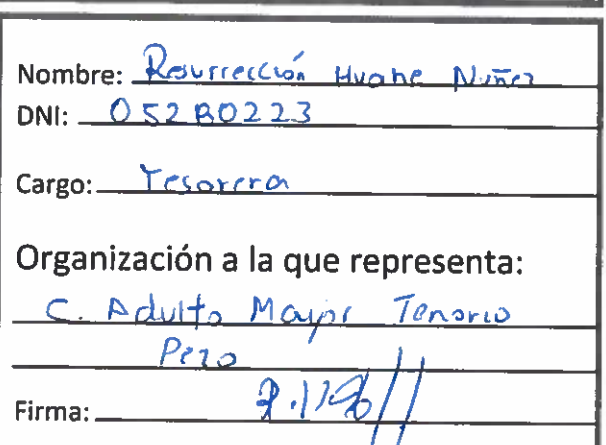 Nombre: Resurrección Huane Nuñez
DNI: 05280223
Cargo: Tesorera
Organización a la que representa:
C. Adulto Mayor Tenorio
Pezo
Firma: